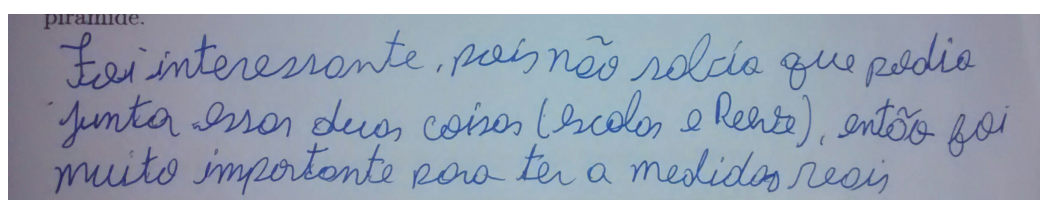 pirâmide.
Foi interessante, pois não sabia que podia
junta essas duas coisas (escolas e), então foi
muito importante para ter a medidas reais